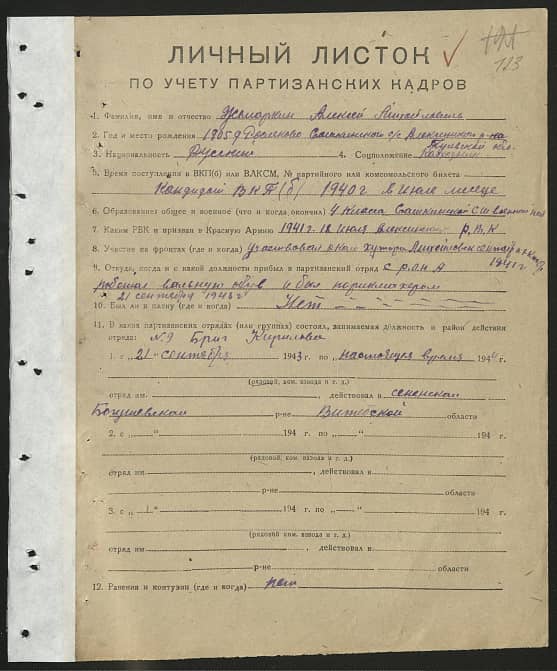 ЛИЧНЫЙ ЛИСТОК
123
ПО УЧЕТУ ПАРТИЗАНСКИХ КАДРОВ
1. Фамилия, имя и отчество Алексей Михайлович
2. Год и место рождения 1905 д. с/с р-на
Тульской обл.
3. Национальность Русский 4. Соцположение
5. Время поступления в ВКП(б) или ВЛКСМ, № партийного или комсомольского билета
Кандидат ВКП(б) 1940 г в Июле месяце
6. Образование общее и военное (что и когда окончил) 4 Класса СШ военной нет
7. Каким РВК и призван в Красную Армию 1941 г. 18 Июля Р.В.К
8. Участие на фронтах (где и когда) участвовал около хутора
1941 г.
9. Откуда, когда и с какой должности прибыл в партизанский отряд с Р.О.Н.А
работал и был парикмахером
21 сентября 1943 г
10. Был ли в плену (где и когда) Нет
11. В каких партизанских отрядах (или группах) состоял, занимаемая должность и район действия
отряда: №9 Бриг Кирилова
1. с „21“ сентября 1943 г. по „настоящее время 1944 г.
(рядовой, ком. взвода и т. д.)
отряд им. , действовал в сененском
Богушевском р-не Витебской области
2. с „ “ 194 г. по „ “ 194 г.
(рядовой, ком. взвода и т. д.)
отряд им. , действовал в
р-не области
3. с „ “ 194 г. по „ “ 194 г.
(рядовой, ком. взвода и т. д.)
отряд им , действовал в
р-не области
12. Ранения и контузии (где и когда) нет